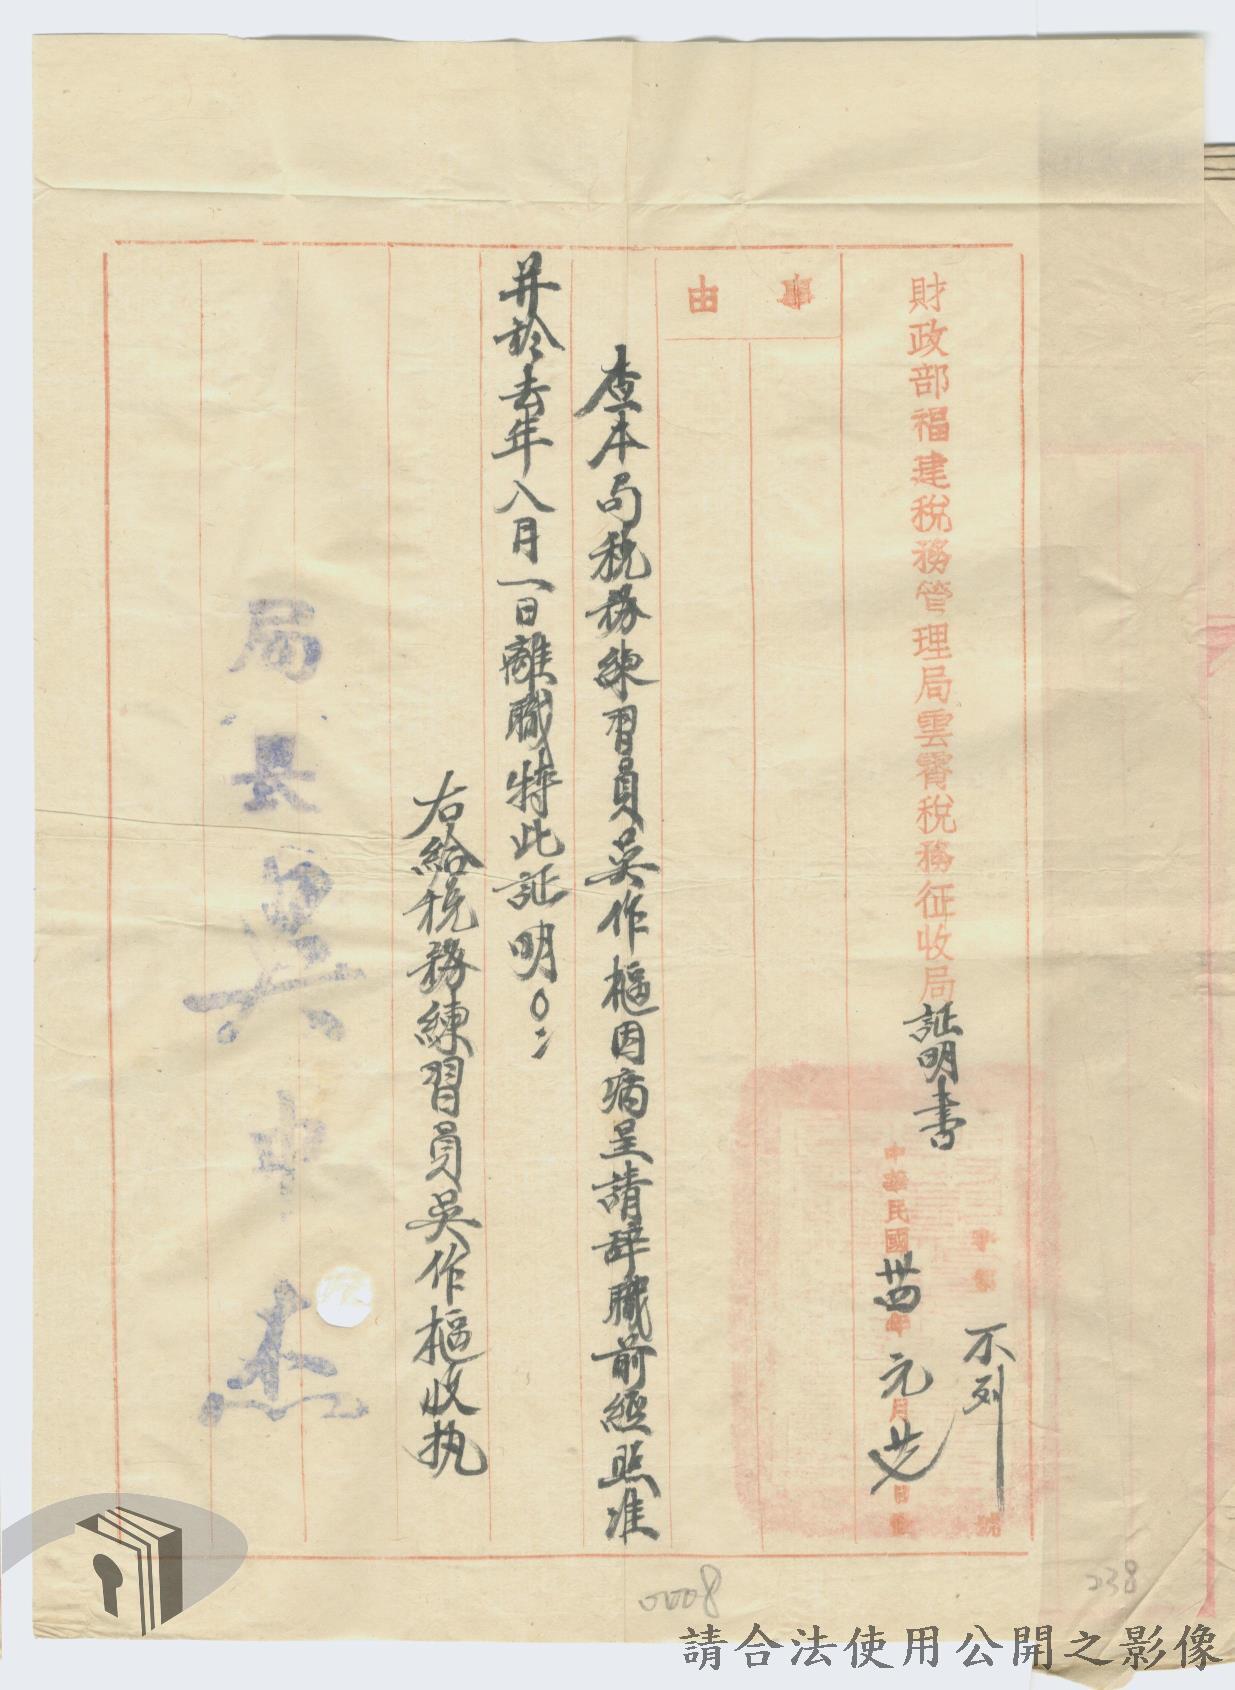 財政部福建稅務管理局雲霄稅務征收局証明書
不列號
中華民國卅四年元月廿七日發
事由
查本局稅務練習員吳作樞因病呈請辞職前經照准
并於去年八月一日離職特此証明
右給稅務練習員吳作樞收执
局長吳中杰
0008
238
請合法使用公開之影像